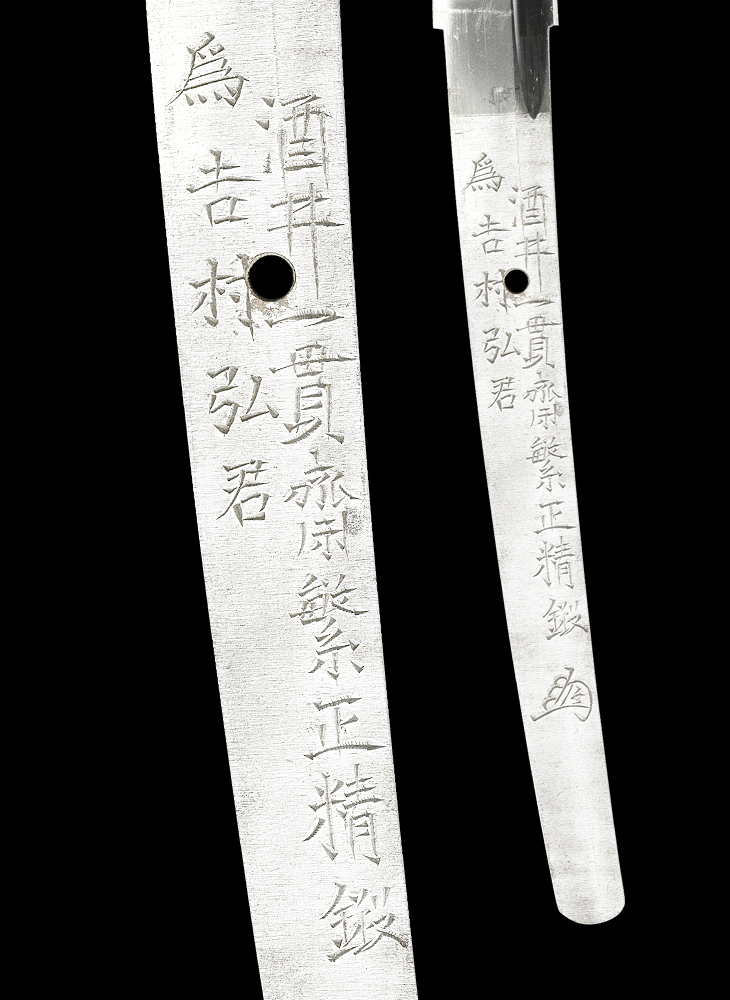 酒井一貫齋繁正精鍛
爲吉村弘君
酒井一貫齋繁正精鍛
爲吉村弘君